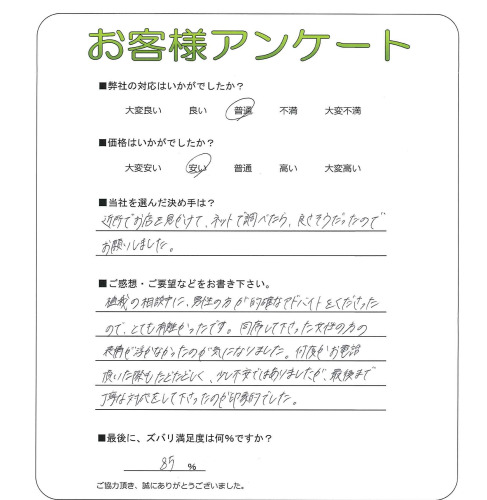 お客様アンケート
■弊社の対応はいかがでしたか?
大変良い 良い 普通 不満 大変不満
■価格はいかがでしたか?
大変安い 安い 普通 高い 大変高い
■当社を選んだ決め手は?
近所でお店を見かけて、ネットで調べたら、良さそうだったので
お願いしました。
■ご感想・ご要望などをお書き下さい。
植栽の相談中に、男性の方が的確なアドバイスをくださった
ので、とても有難かったです。同席して下さった女性の方の
表情が浮かなかったのが気になりました。何度かお電話
頂いた際もたどたどしく、少し不安ではありましたが、最後まで
丁寧な対応をして下さったのが印象的でした。
■最後に、ズバリ満足度は何%ですか?
85 %
ご協力頂き、誠にありがとうございました。